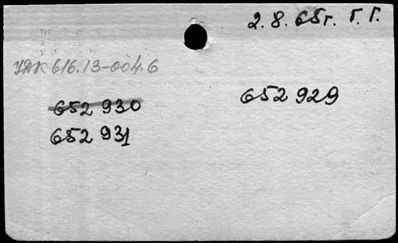 2.8.65г. Г.Г.
УДК 616.13-004.6
652 930 652 929
652 931